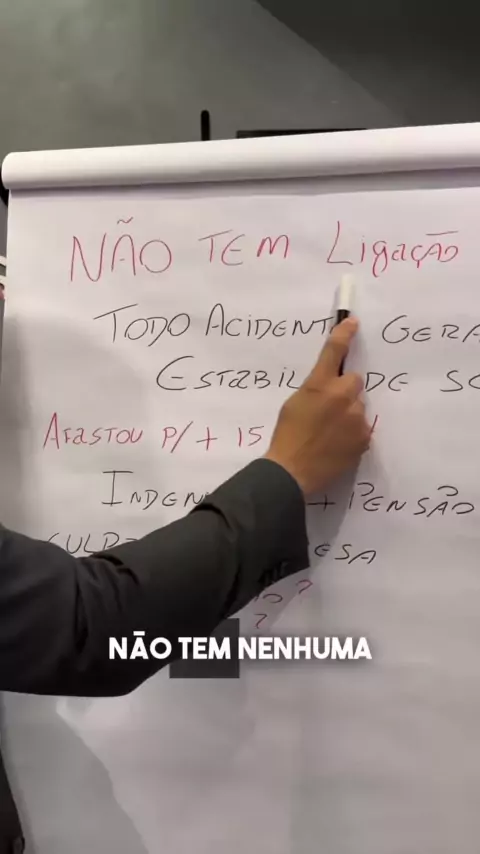 NÃO TEM LigaÇÃO
TODO ACIDENT GERA
ESTABIL DE SO
AFASTOU P/ + 15
INDEN + PENSÃO
CULP ESA
?
?
NÃO TEM NENHUMA